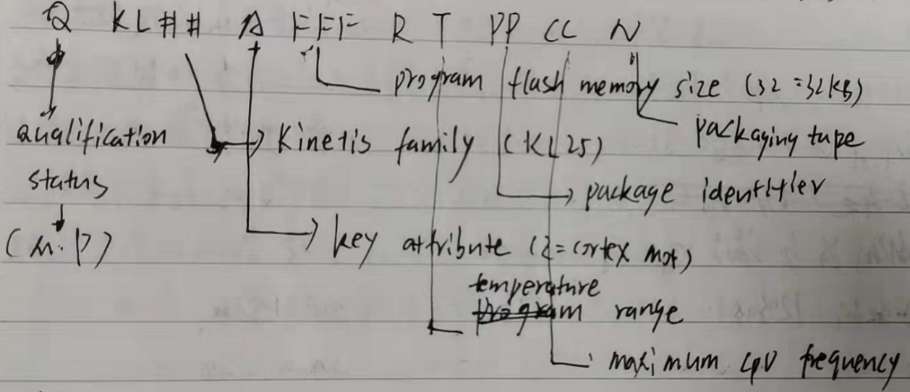 Q KL## A FFF R T PP CC N
program flash memory size (32=32KB)
packaging tape
qualification
status
(M.P)
Kinetis family (KL25)
package identifier
key attribute (Z=cortex M0+)
temperature
range
maximum CPU frequency